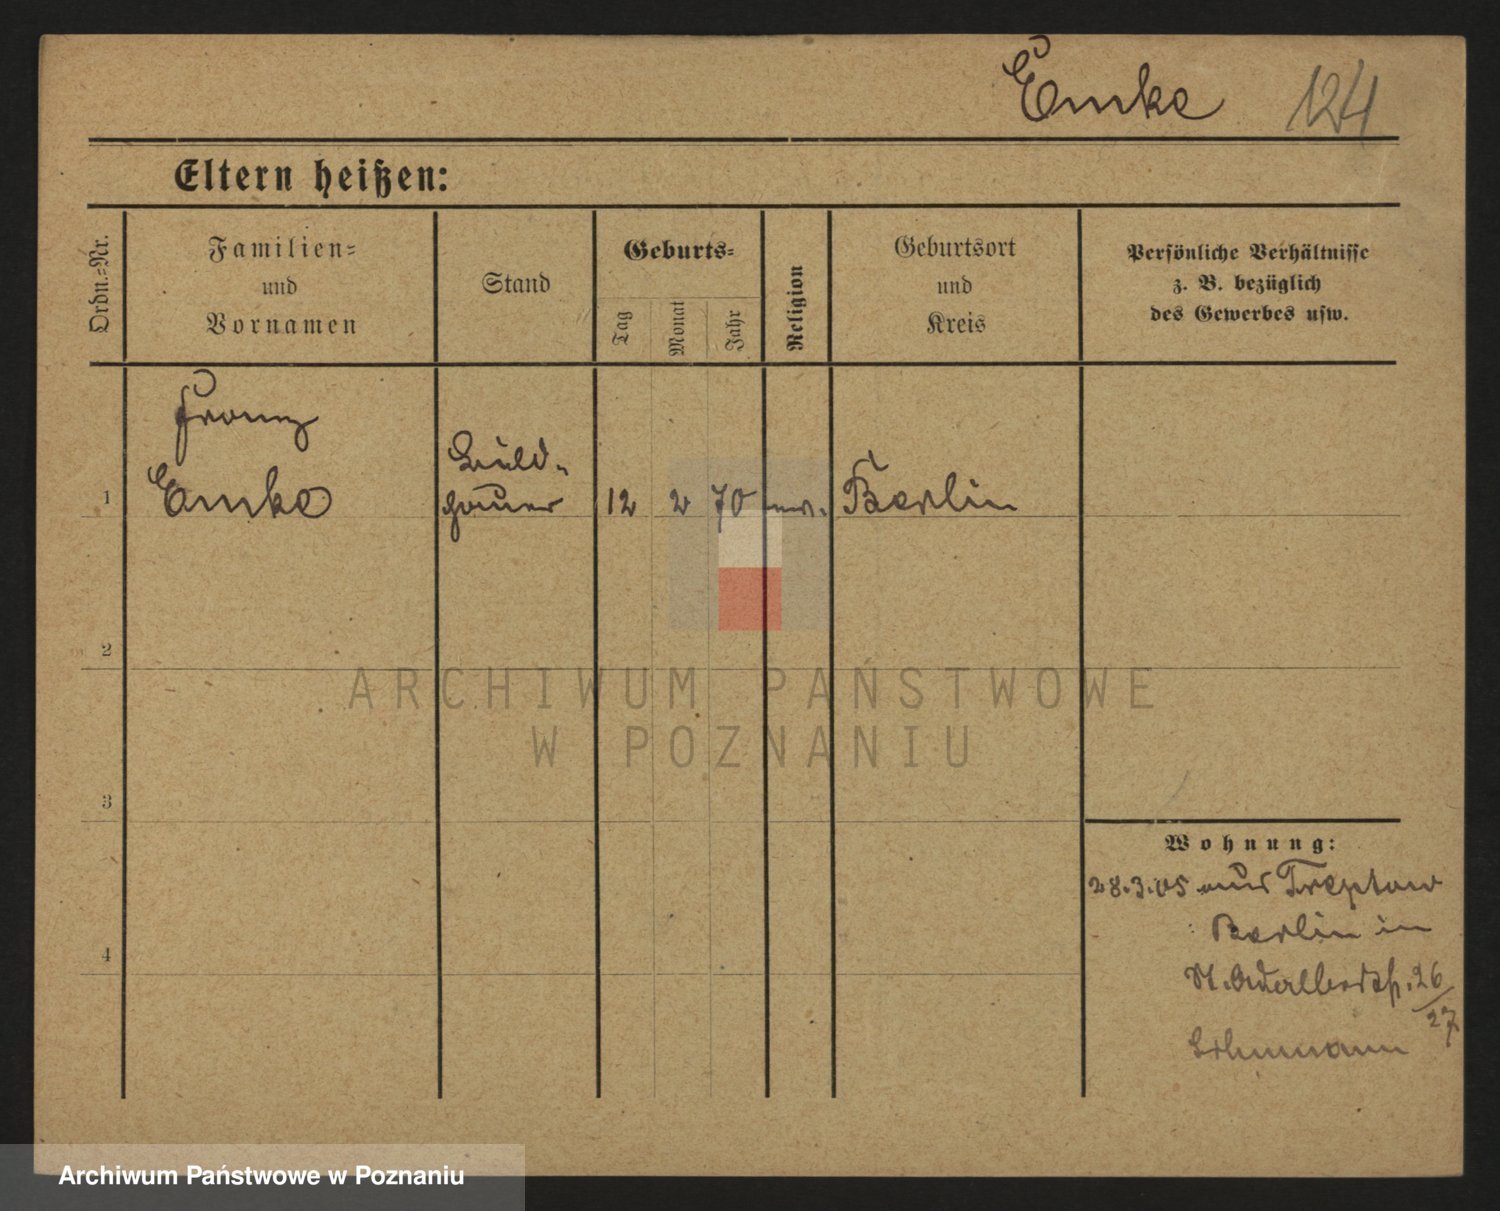 Emke 124
Eltern heißen:
Ordn.=Nr.
Familien=
und
Vornamen
Stand
Geburts=
Tag
Monat
Jahr
Religion
Geburtsort
und
Kreis
Persönliche Verhältnisse
z. B. bezüglich
des Gewerbes usw.
Franz
1 Emke
Bild-
hauer
12 2 70 ev. Berlin
2
3
4
Wohnung:
28.3.05 aus Treptow
Berlin in
St. Adalbertstr. 26/27
ARCHIWUM PAŃSTWOWE
W POZNANIU
Archiwum Państwowe w Poznaniu